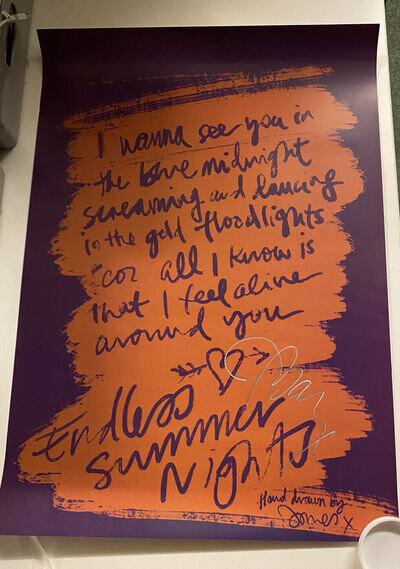 I wanna see you in
the blue midnight
screaming and dancing
in the gold floodlights
'coz all I know is
that I feel alive
around you
Endless
Summer
Nights
Hand drawn by
James x